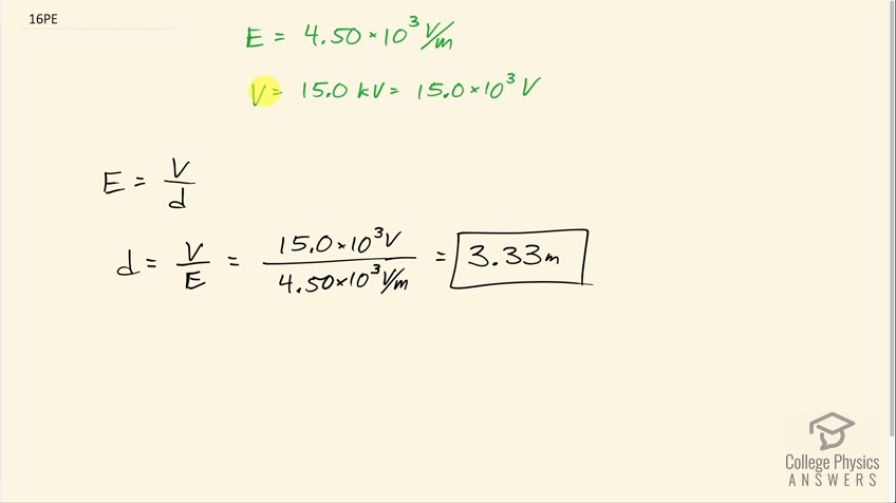 16PE
E = 4.50 × 10³ V/m
V = 15.0 kV = 15.0 × 10³ V
E = V/d
d = V/E = 15.0 × 10³ V / 4.50 × 10³ V/m = 3.33 m
College Physics
ANSWERS